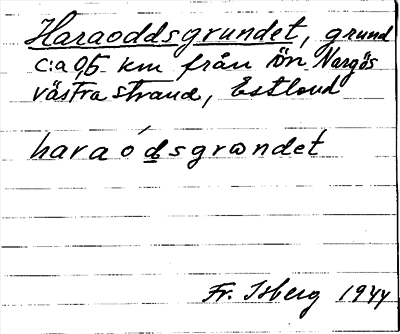 Haraoddsgrundet, grund
c:a 0,5 km från ön Nargös
västra strand, Estland
haraódsgrωndet
Fr. Isberg 1944